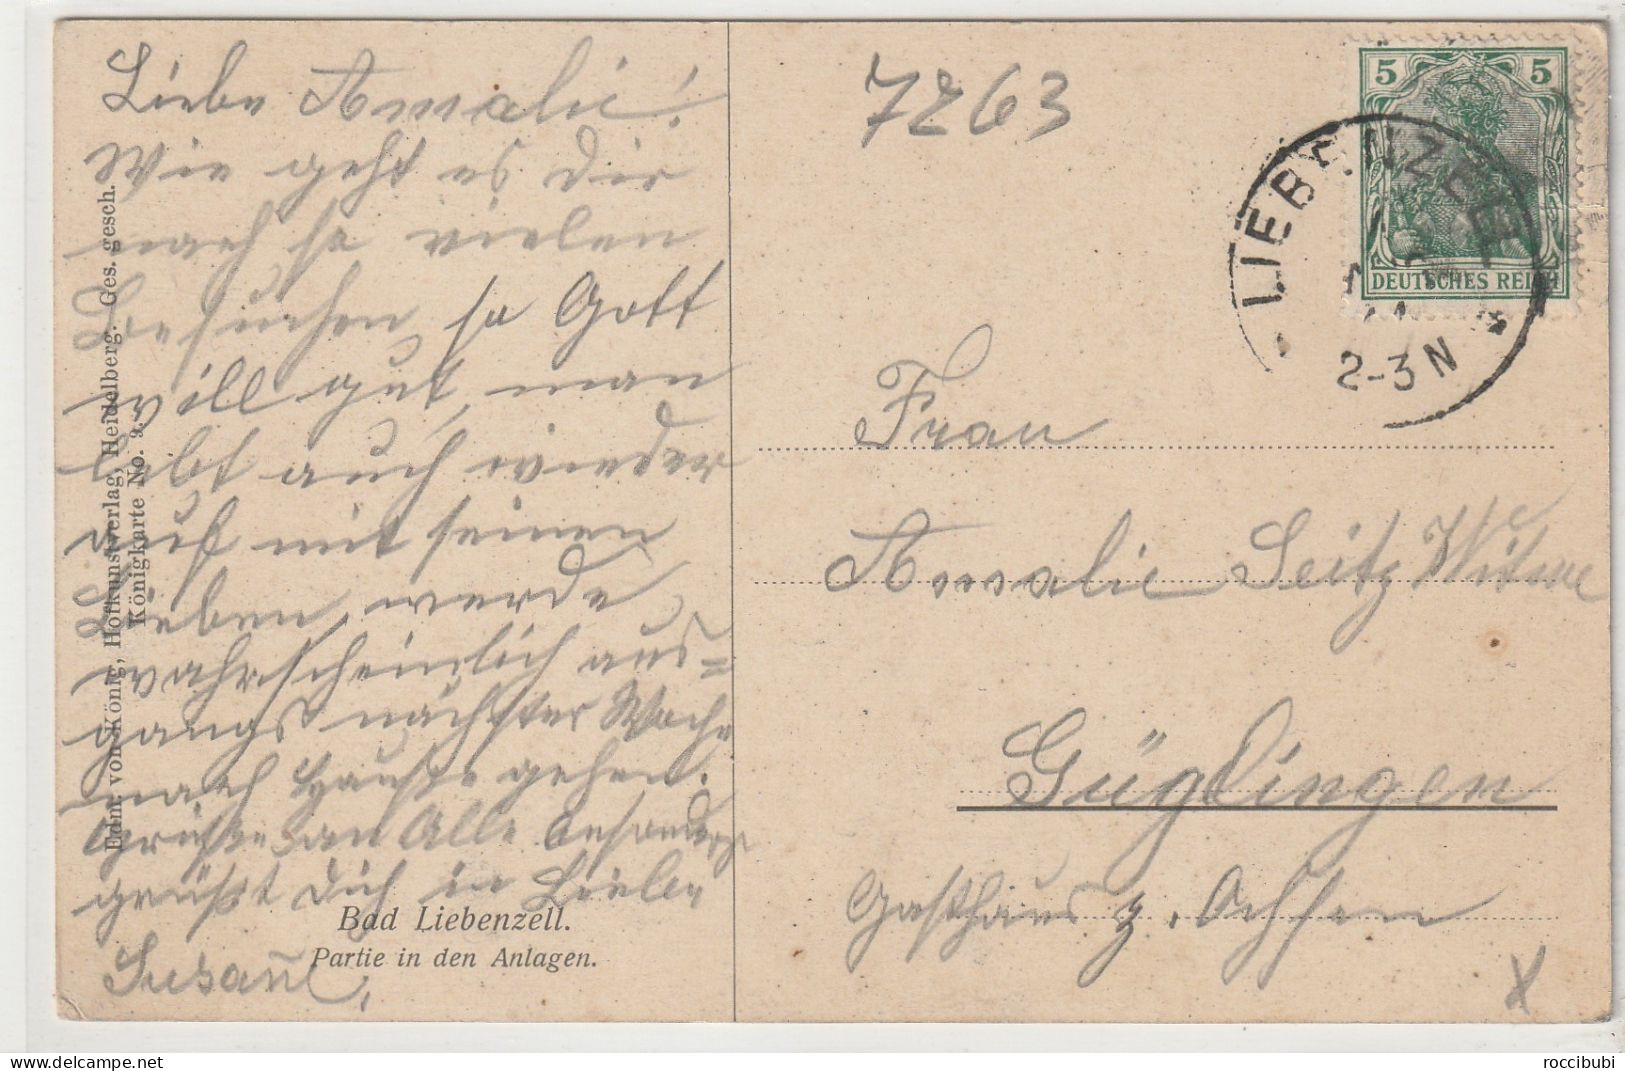 Liebe Amalie!
Wie geht es Dir
nach so vielen
Besuchen, so Gott
will gut, man
lebt auch wieder
auf mit seinen
Lieben, werde
wahrscheinlich aus=
gangs nächster Woche
nach Hause gehen.
Grüße an Alle besonders
grüßt Dich in Liebe
Susane,
Bad Liebenzell.
Partie in den Anlagen.
Edm. von König, Hofkunstverlag, Heidelberg. Ges. gesch.
Königkarte No. 9.
7263
5 5
DEUTSCHES REICH
LIEBENZELL
2-3 N
Frau
Amalie Seitz Witwe
Güglingen
Gasthaus z. Ochsen
X
roccibubi